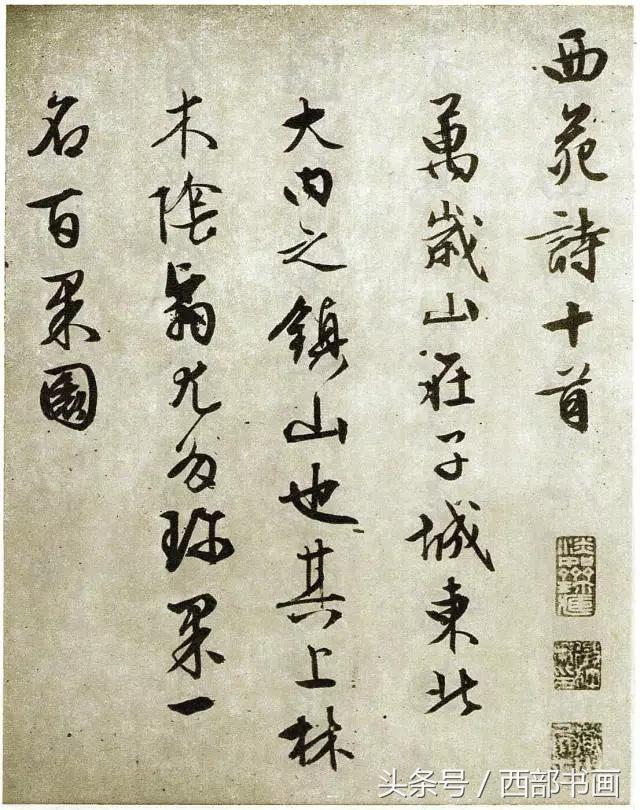 西苑詩十首
萬歲山在子城東北
大内之鎮山也其上林
木陰翳尤多珍果一
名百果園
头条号 / 西部书画